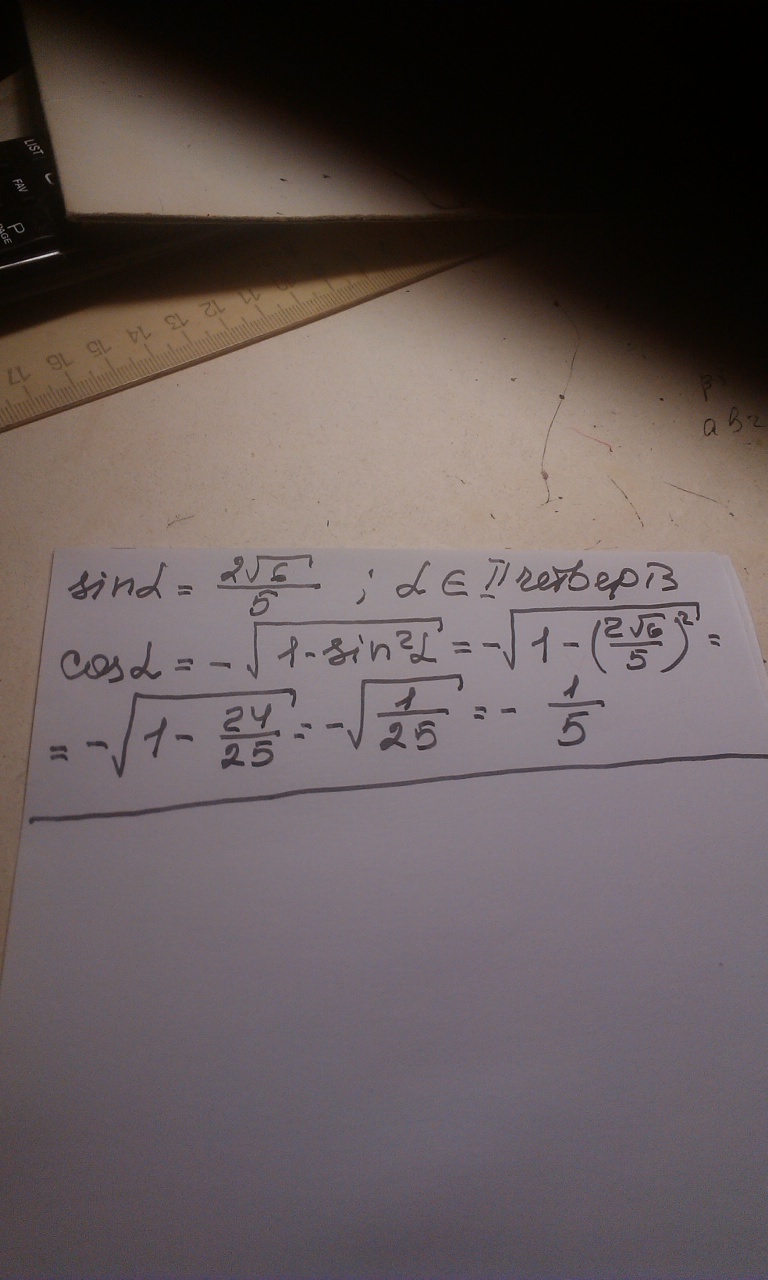 LIST
FAV
PAGE
P
17 16 15 14 13 12 11 10
a b =
sinα = 2√6/5 ; α ∈ II четверть
cosα = -√(1-sin²α) = -√(1-(2√6/5)²) =
= -√(1-24/25) = -√(1/25) = -1/5